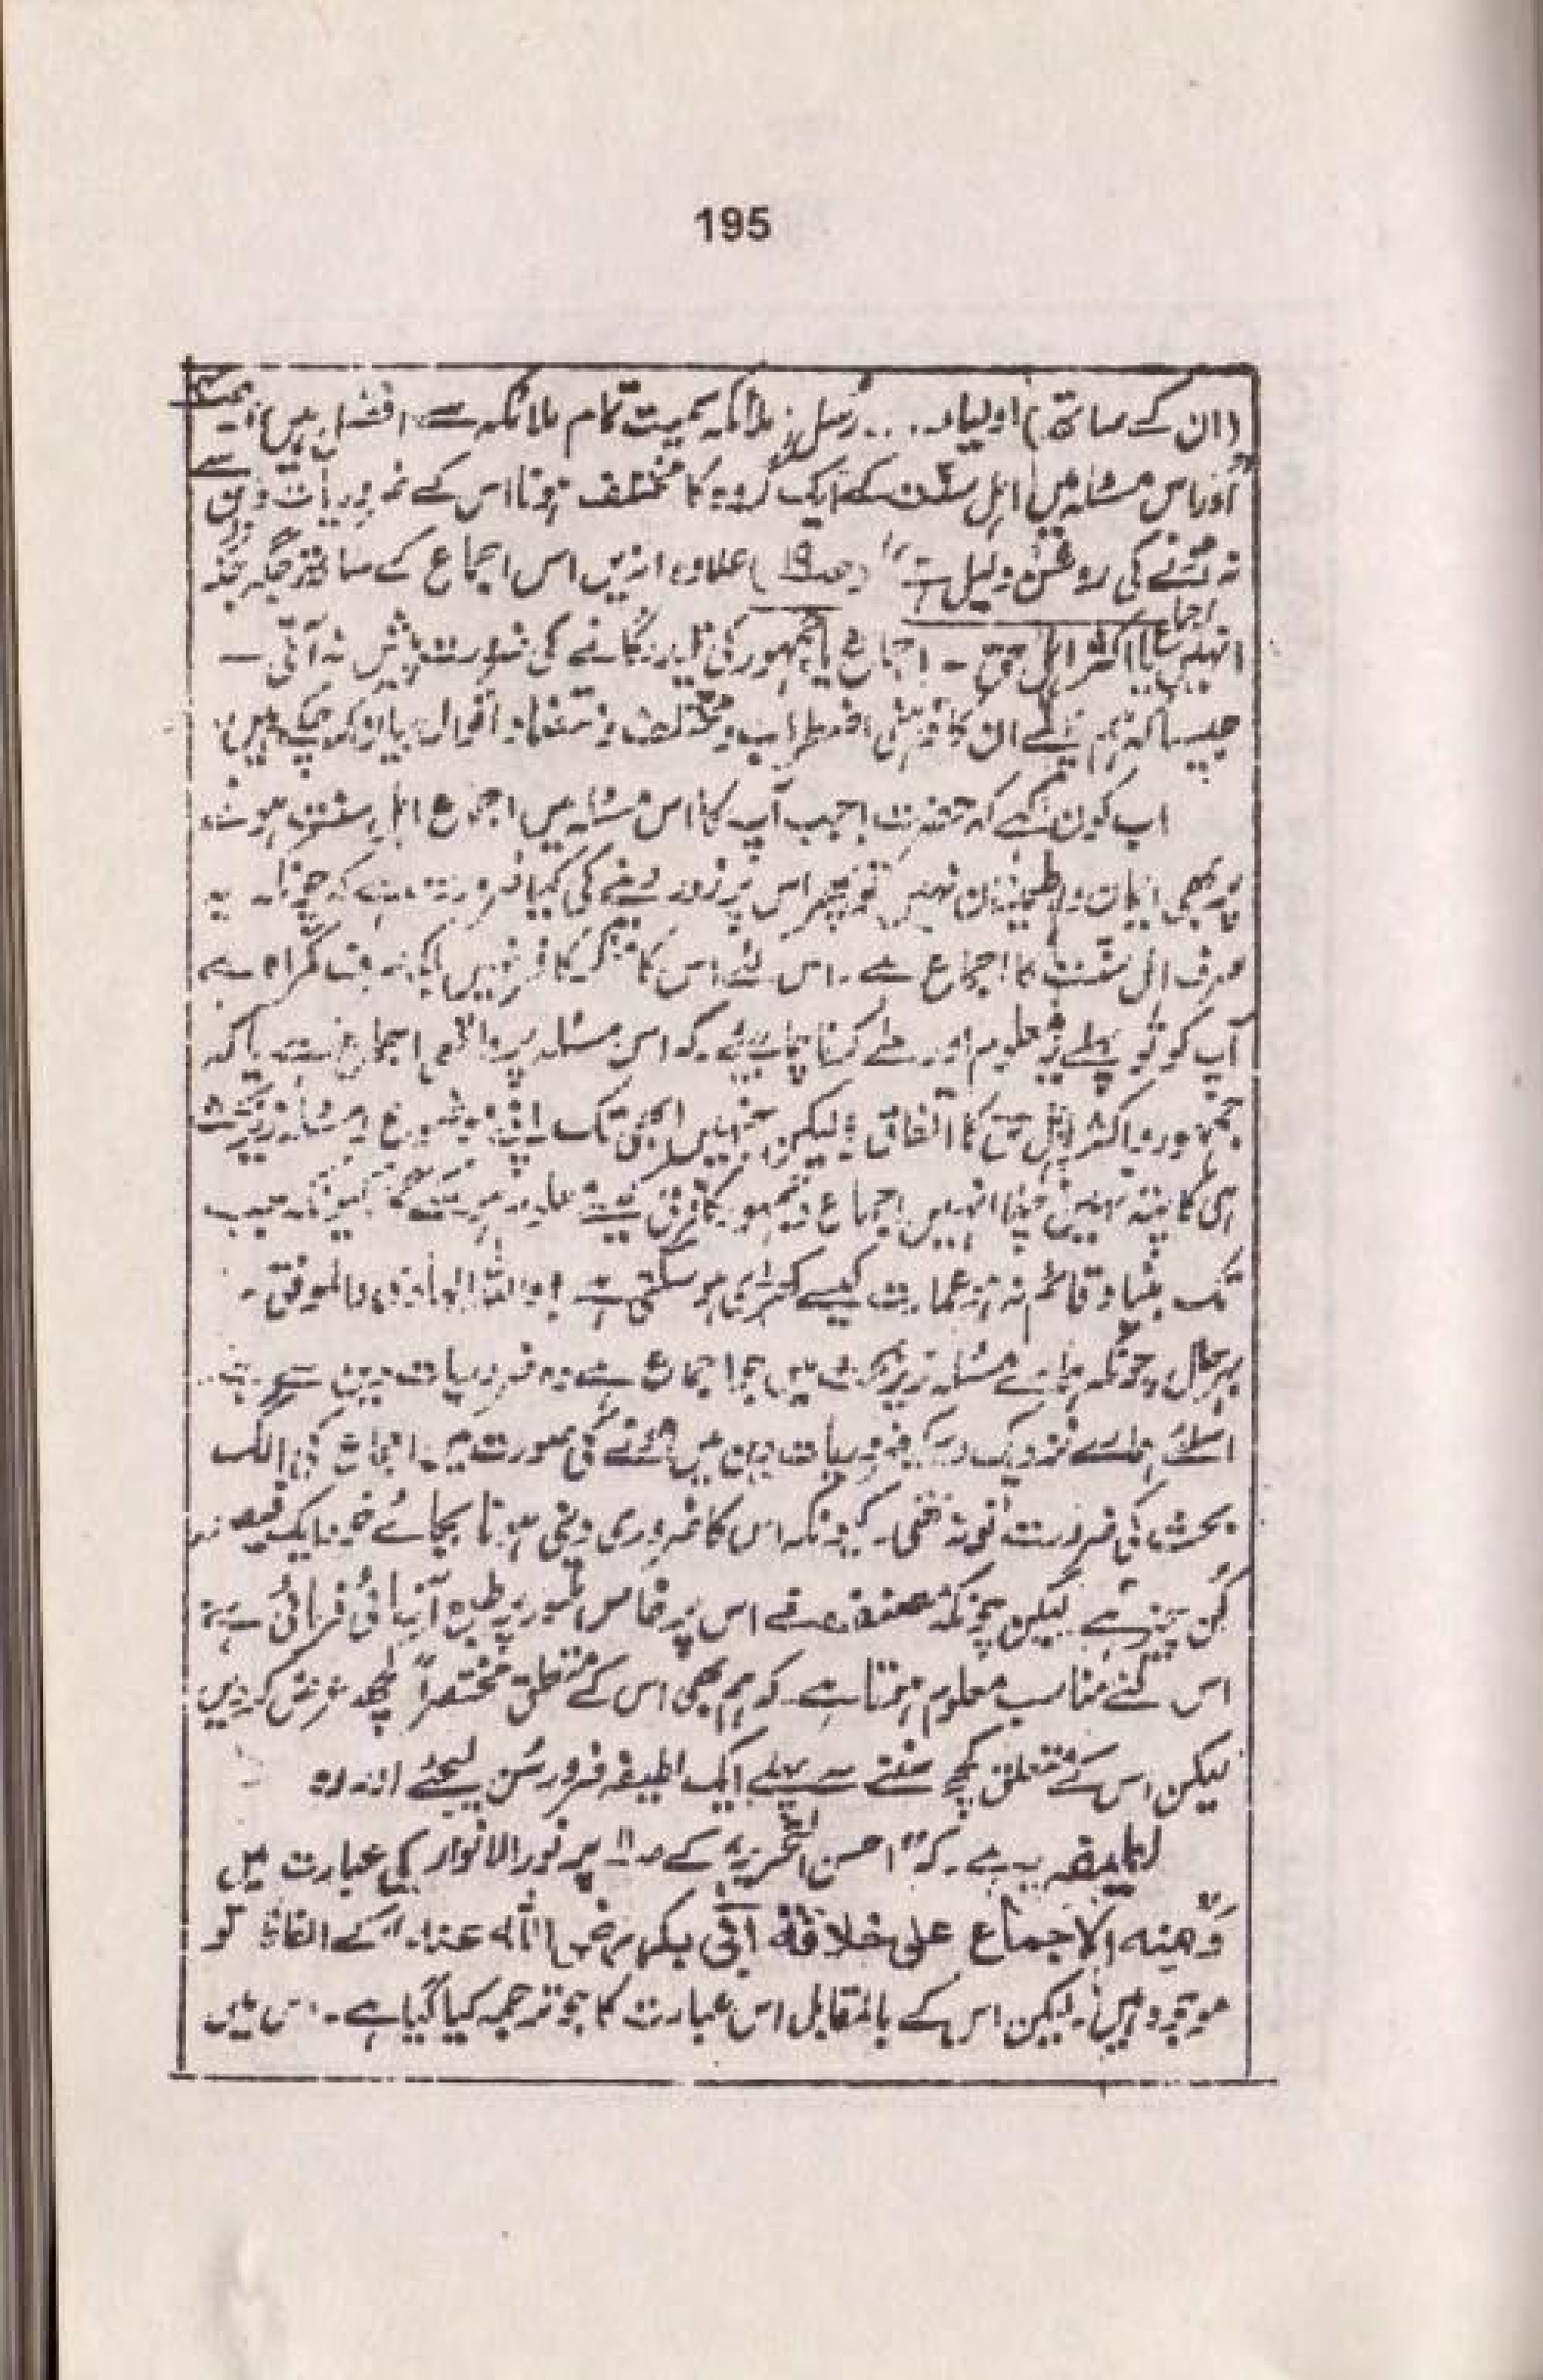 195
(ان کے ساتھ) اولیاء . . . رُسل ملائکہ سمیت تمام ملائکہ سے افضل ہیں
اور اس مسئلہ میں اہل سنّت کے ایک گروہ کا مختلف ہونا اس کے ضروریات دین سے
نہ ہونے کی روشن دلیل ہے" (صـ١٩) علاوہ ازیں اس اجماع کے ساتھ جگہ جگہ
انہیں یا اکثر اہل حق - اجماع یا جمہور کی لگانے کی ضرورت پیش نہ آتی -
جیسا کہ ہم پہلے ان کا ذہنی اضطراب و مختلف و متضاد اقوال بیان کر چکے ہیں
اب کون کہے کہ حضرت جب آپ کا اس مسئلہ میں اجماع اہل سنّت ہونے
پر بھی ایمان و اطمینان نہیں تو پھر اس پر زور دینے کی کیا ضرورت ہے کہ چونکہ یہ
صرف اہل سنّت کا اجماع ہے . اس لئے اس کا منکر کافر نہیں بلکہ گمراہ ہے
آپ کو تو پہلے یہ معلوم اور طے کرنا چاہیے . کہ اس مسئلہ پر واقعی اجماع ہے یا کہ
جمہور و اکثر اہل حق کا اتفاق ؛ لیکن جنہیں ابھی تک اپنے موضوع و مسئلہ زیر بحث
ہی کا پتہ نہیں انہیں اجماع و جمہور کا فرق کیسے معلوم ہو سکے گا کیونکہ جب
تک بنیاد قائم نہ ہو عمارت کیسے کھڑی ہو سکتی ہے واللہ الہادی والموفق -
بہرحال چونکہ ہمارے مسئلہ زیر بحث میں جو اجماع ہے وہ ضروریات دین سے ہے
اسلئے ہمارے نزدیک ضروریات دین میں ہونے کی صورت میں اجماع کی الگ
بحث کی ضرورت ہی نہ تھی . کیونکہ اس کا ضروری دینی ہونا بجائے خود ایک فیصلہ
کُن چیز ہے لیکن چونکہ مصنف نے اس پر خاص طور پر طبع آزمائی فرمائی ہے
اس لئے مناسب معلوم ہوتا ہے . کہ ہم بھی اس کے متعلق مختصراً کچھ عرض کر دیں
لیکن اس کے متعلق کچھ سننے سے پہلے ایک لطیفہ ضرور سُن لیجئے اور وہ
لطیفہ یہ ہے . کہ "احسن التحریر" کے صـ١١ پر نور الانوار کی عبارت میں
"ومنه الاجماع على خلافة ابی بکر رضی الله عنه" کے الفاظ تو
موجود ہیں . لیکن اس کے بالمقابل اس عبارت کا جو ترجمہ کیا گیا ہے . اس میں